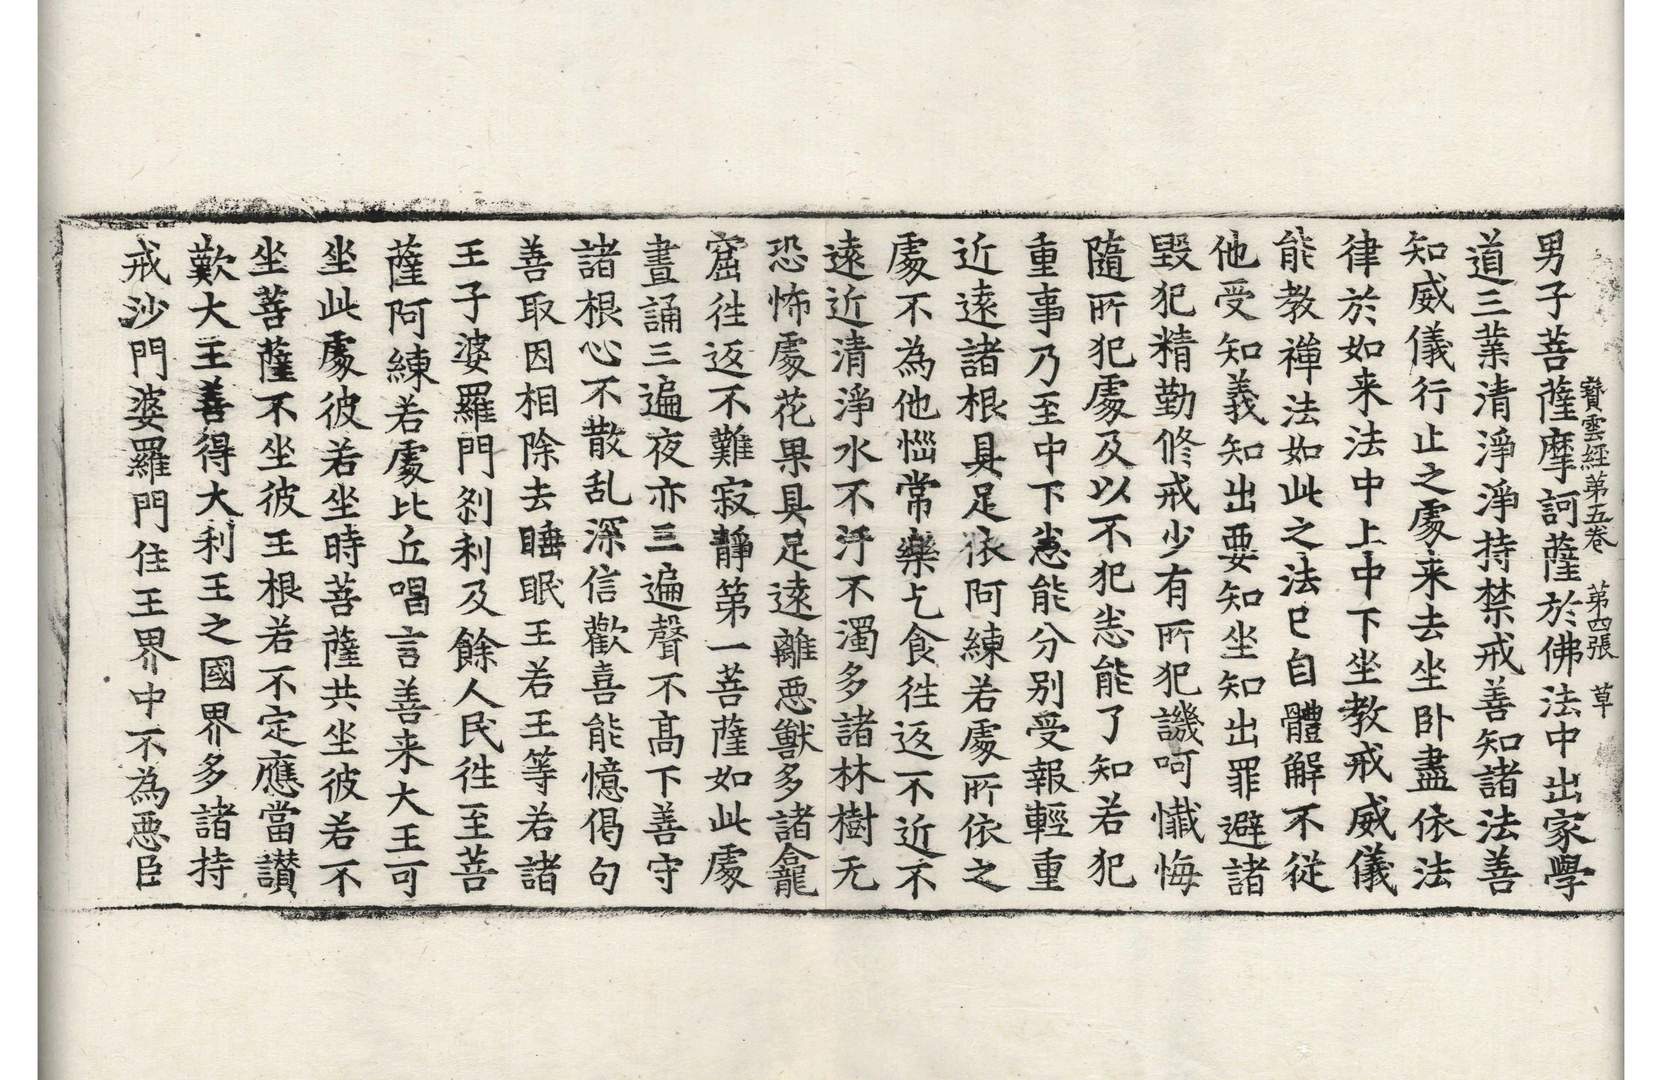 寶雲經第五卷 第四張 草
男子菩薩摩訶薩於佛法中出家學
道三業清淨淨持禁戒善知諸法善
知威儀行止之處来去坐卧盡依法
律於如来法中上中下坐教戒威儀
能教禪法如此之法已自體解不從
他受知義知出要知坐知出罪避諸
毀犯精勤修戒少有所犯譏呵懺悔
隨所犯處及以不犯悉能了知若犯
重事乃至中下悉能分别受報輕重
近遠諸根具足依阿練若處所依之
處不為他惱常樂乞食徃返不近不
遠近清淨水不汙不濁多諸林樹无
恐怖處花果具足遠離惡獸多諸龕
窟徃返不難寂靜第一菩薩如此處
晝誦三遍夜亦三遍聲不髙下善守
諸根心不散乱深信歡喜能憶偈句
善取因相除去睡眠王若王等若諸
王子婆羅門剎利及餘人民徃至菩
薩阿練若處比丘唱言善来大王可
坐此處彼若坐時菩薩共坐彼若不
坐菩薩不坐彼王根若不定應當讃
歎大王善得大利王之國界多諸持
戒沙門婆羅門住王界中不為惡臣